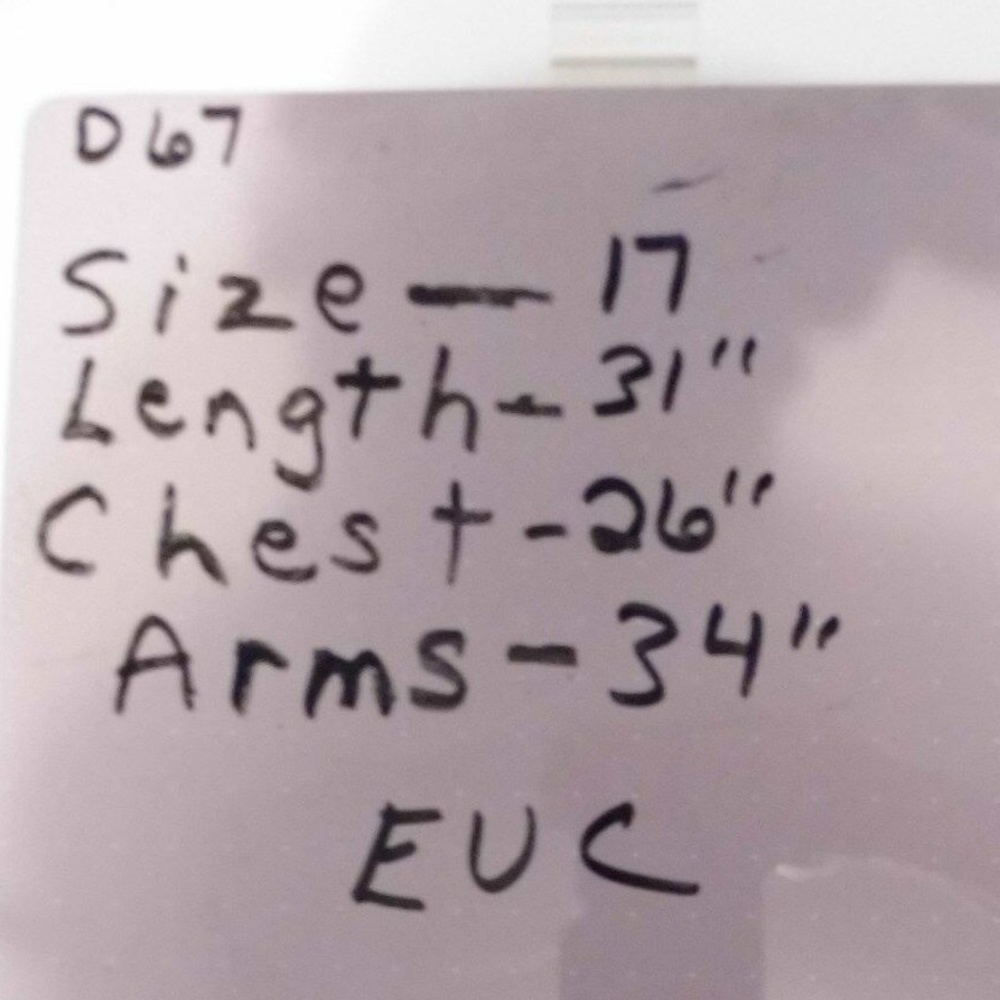 D67
Size — 17
Length - 31"
Chest - 26"
Arms - 34"
EUC